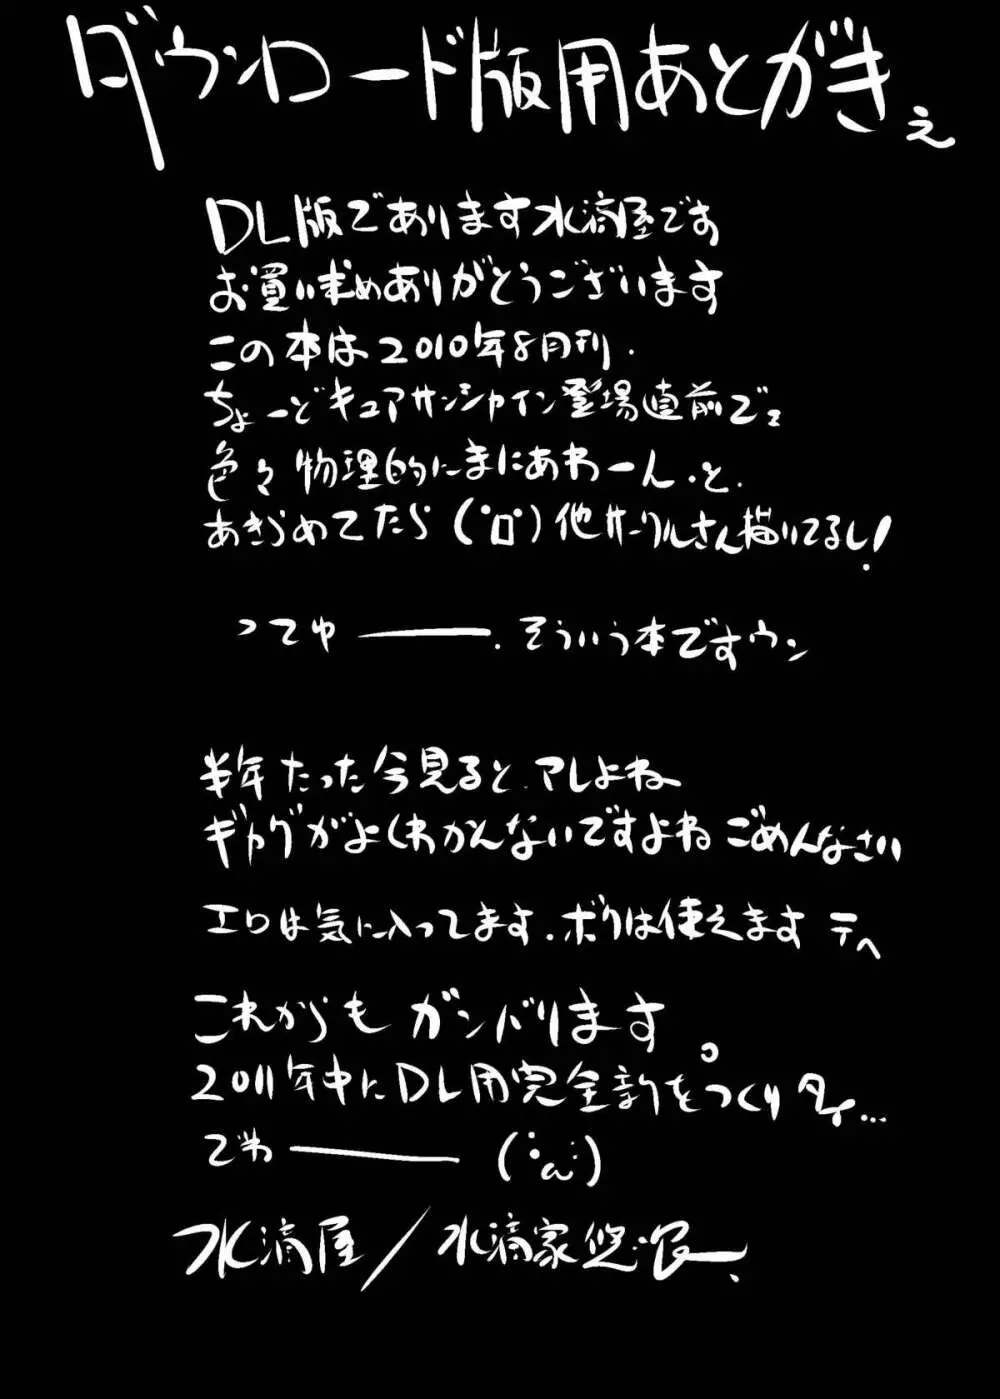 ダウンロード版用あとがきぇ
DL版であります水滴屋です
お買い求めありがとうございます
この本は2010年8月刊.
ちょーどキュアサンシャイン登場直前でェ
色々物理的にまにあわーん.と.
あきらめてたら(°ロ°)他サークルさん描いてるし!
ってゆ――.そういう本ですウン
半年たった今見ると.アレよね
ギャグがよくわかんないですよねごめんなさい
エロは気に入ってます.ボクは使えますテヘ
これからもガンバリます。
2011年中にDL用完全新をつくりタイ...
でわ――(°ω°)
水滴屋/水滴家悠